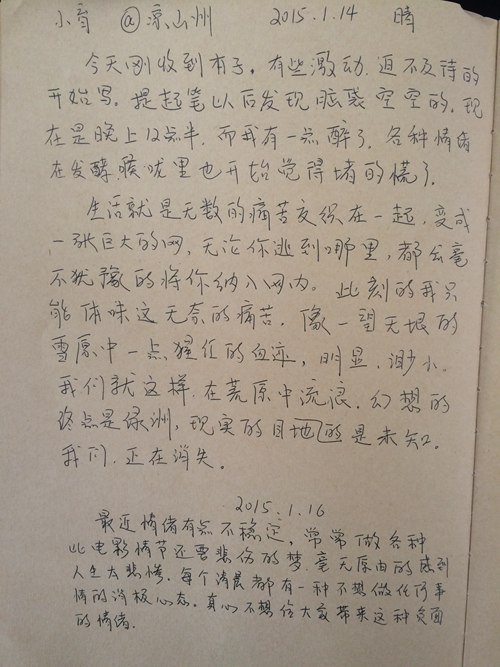 小育 @凉山州 2015.1.14 晴
今天刚收到本子。有些激动,迫不及待的
开始写。提起笔以后发现脑袋空空的。现
在是晚上12点半,而我有一点醉了,各种情绪
在发酵,喉咙里也开始觉得堵的慌了。
生活就是无数的痛苦交织在一起,变成
一张巨大的网,无论你逃到哪里,都会毫
不犹豫的将你纳入网内。此刻的我只
能体味这无奈的痛苦,像一望无垠的
雪原中一点猩红的血迹,明显,渺小。
我们就这样,在荒原中流浪,幻想的
终点是绿洲,现实的目地的是未知。
我们,正在消失。
2015.1.16
最近情绪有点不稳定,常常做各种
比电影情节还要悲伤的梦,毫无原由的感到
人生太悲惨。每个清晨都有一种不想做任何事
情的消极心态。真心不想给大家带来这种负面
的情绪。